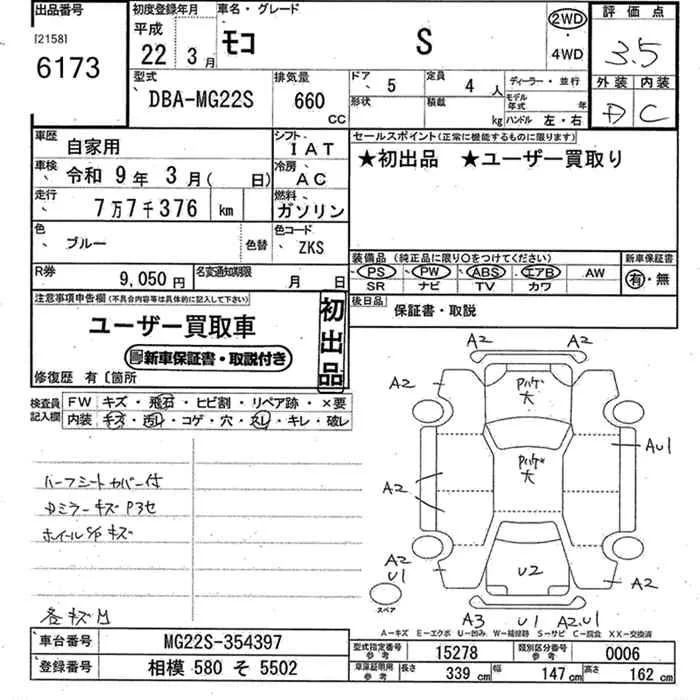 出品番号
[2158]
6173
初度登録年月
平成
22 3月
車名・グレード
モコ S
2WD
・
4WD
評価点
3.5
外装 内装
D C
型式
DBA-MG22S
排気量
660
CC
ドア
5
定員
4人
形状
積載
kg
ディーラー・並行
モデル年式 年
ハンドル 左・右
車歴
自家用
車検
令和 9年 3月( 日)
走行
7万7千376 km
色
ブルー
色替
シフト
IAT
冷房
AC
燃料
ガソリン
色コード
ZKS
セールスポイント(正常に機能するものに限ります)
★初出品 ★ユーザー買取り
装備品 (純正品に限り○をつけてください)
PS PW ABS エアB AW
SR ナビ TV カワ
新車保証書
有・無
R券
9,050円
名変通知期限
月 日
後日品
保証書・取説
注意事項申告欄(不具合内容等は具体的に記入して下さい)
ユーザー買取車
新車保証書・取説付き
初出品
修復歴 有〔箇所
検査員記入欄
FW キズ・飛石・ヒビ割・リペア跡・×要
内装 キズ・汚レ・コゲ・穴・スレ・キレ・破レ
ハーフシートカバー付
Dミラーキズ Pヨセ
ホイールS/Pキズ
各キズ凹
A2 A2
A2 Pハゲ大 A2
Pハゲ大 AU1
A2
A2
U1 U2 A2
スペア
A3 U1 A2.U1
A-キズ E-エクボ U-凹み W-補修跡 S-サビ C-腐食 XX-交換済
車台番号
MG22S-354397
登録番号
相模 580 そ 5502
型式指定番号
参考
15278
類別区分番号
参考
0006
車庫証明用
参考
長さ 339cm 幅 147cm 高さ 162cm